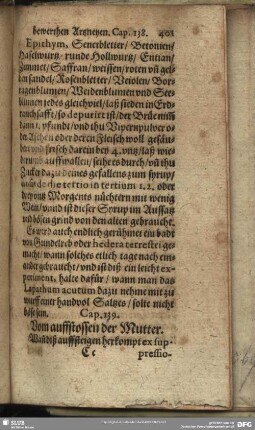 bewerthen Artzneyen. Cap. 138. 401
Epithym, Senetbletter / Betonien /
Haselwurtz / runde Hollwurtz / Entian /
Zimmet / Saffran / weissen / roten vñ gel-
ben sandel / Rosenbletter / Veiolen / Bor-
ragenblumen / Weidenblumen vnd See-
blumen jedes gleichviel / laß sieden in Erd-
rauchsafft / so depurirt ist / der Brüe nim
1. pfundt / vnd thu Vipernpulver o-
der Aschen oder deren Fleisch woll gesäu-
bert vnd frisch darein bey 4. vntz / laß wie-
der auffwallen / seihets durch / vñ thu
Zucker dazu deines gefallens zum syrup /
de die tertio in tertium 1. 2. oder
drey vntz Morgents nüchtern mit wenig
Wein / vnnd ist dieser Syrup im Aussatz
vnd bösen grind von den alten gebraucht.
Es wird auch endlich gerühmet ein badt
von Gundelreb oder hedera terrestri ge-
macht / wann solches etlich tage nach ein-
ander gebraucht / vnd ist diß ein leicht ex-
periment, halte dafür / wann man das
Lapathum acutum dazu nehme mit zu
wurff einer handvol Saltzes / solte nicht
böse sein.
Cap. 139.
Vom auffstossen der Mutter.
Wañ diß auffsteigen herkompt ex sup-
Cc pressio-